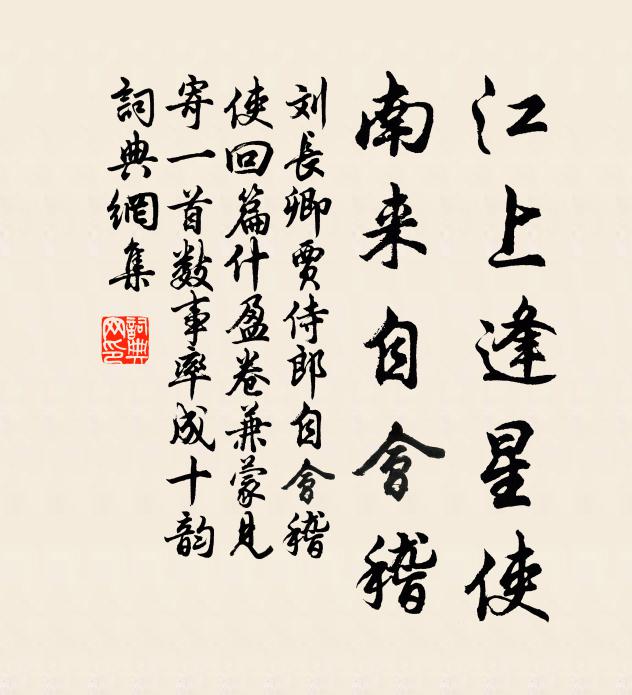 江上逢星使
南来自會稽
刘長卿賈侍郎自會稽
使回篇什盈卷兼蒙見
寄一首數事率成十韵
詞典網集
詞典網印